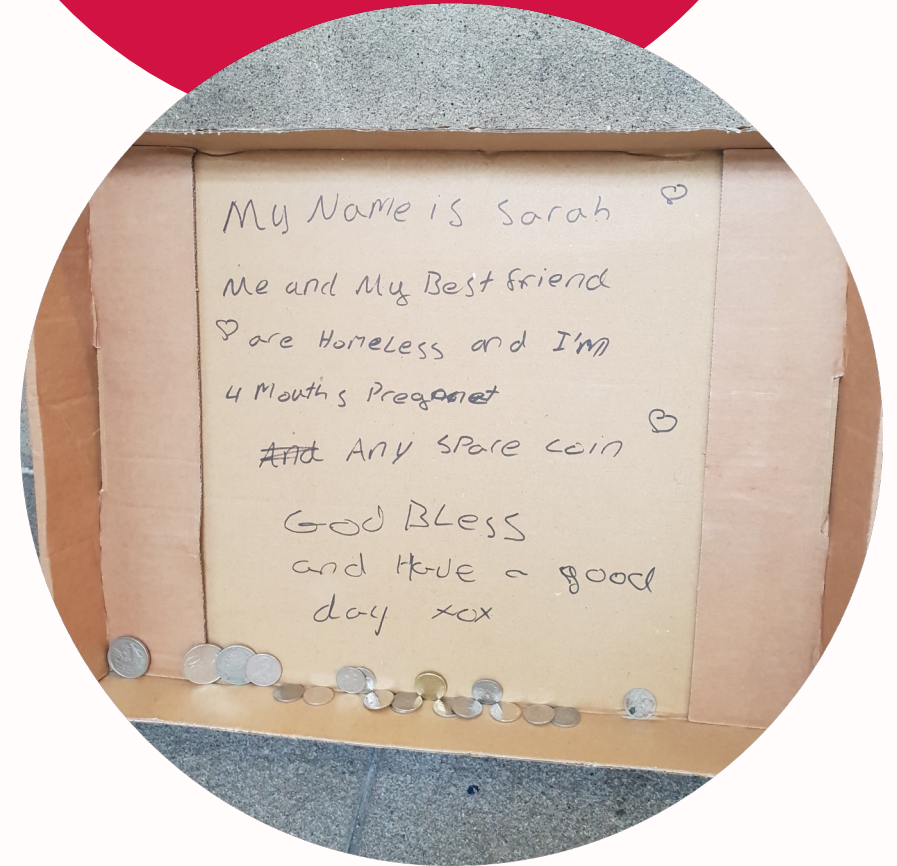 My Name is Sarah
Me and My Best friend
are Homeless and I'm
4 Mouths Pregonet
And Any Spare coin
God Bless
and Have a good
day xox